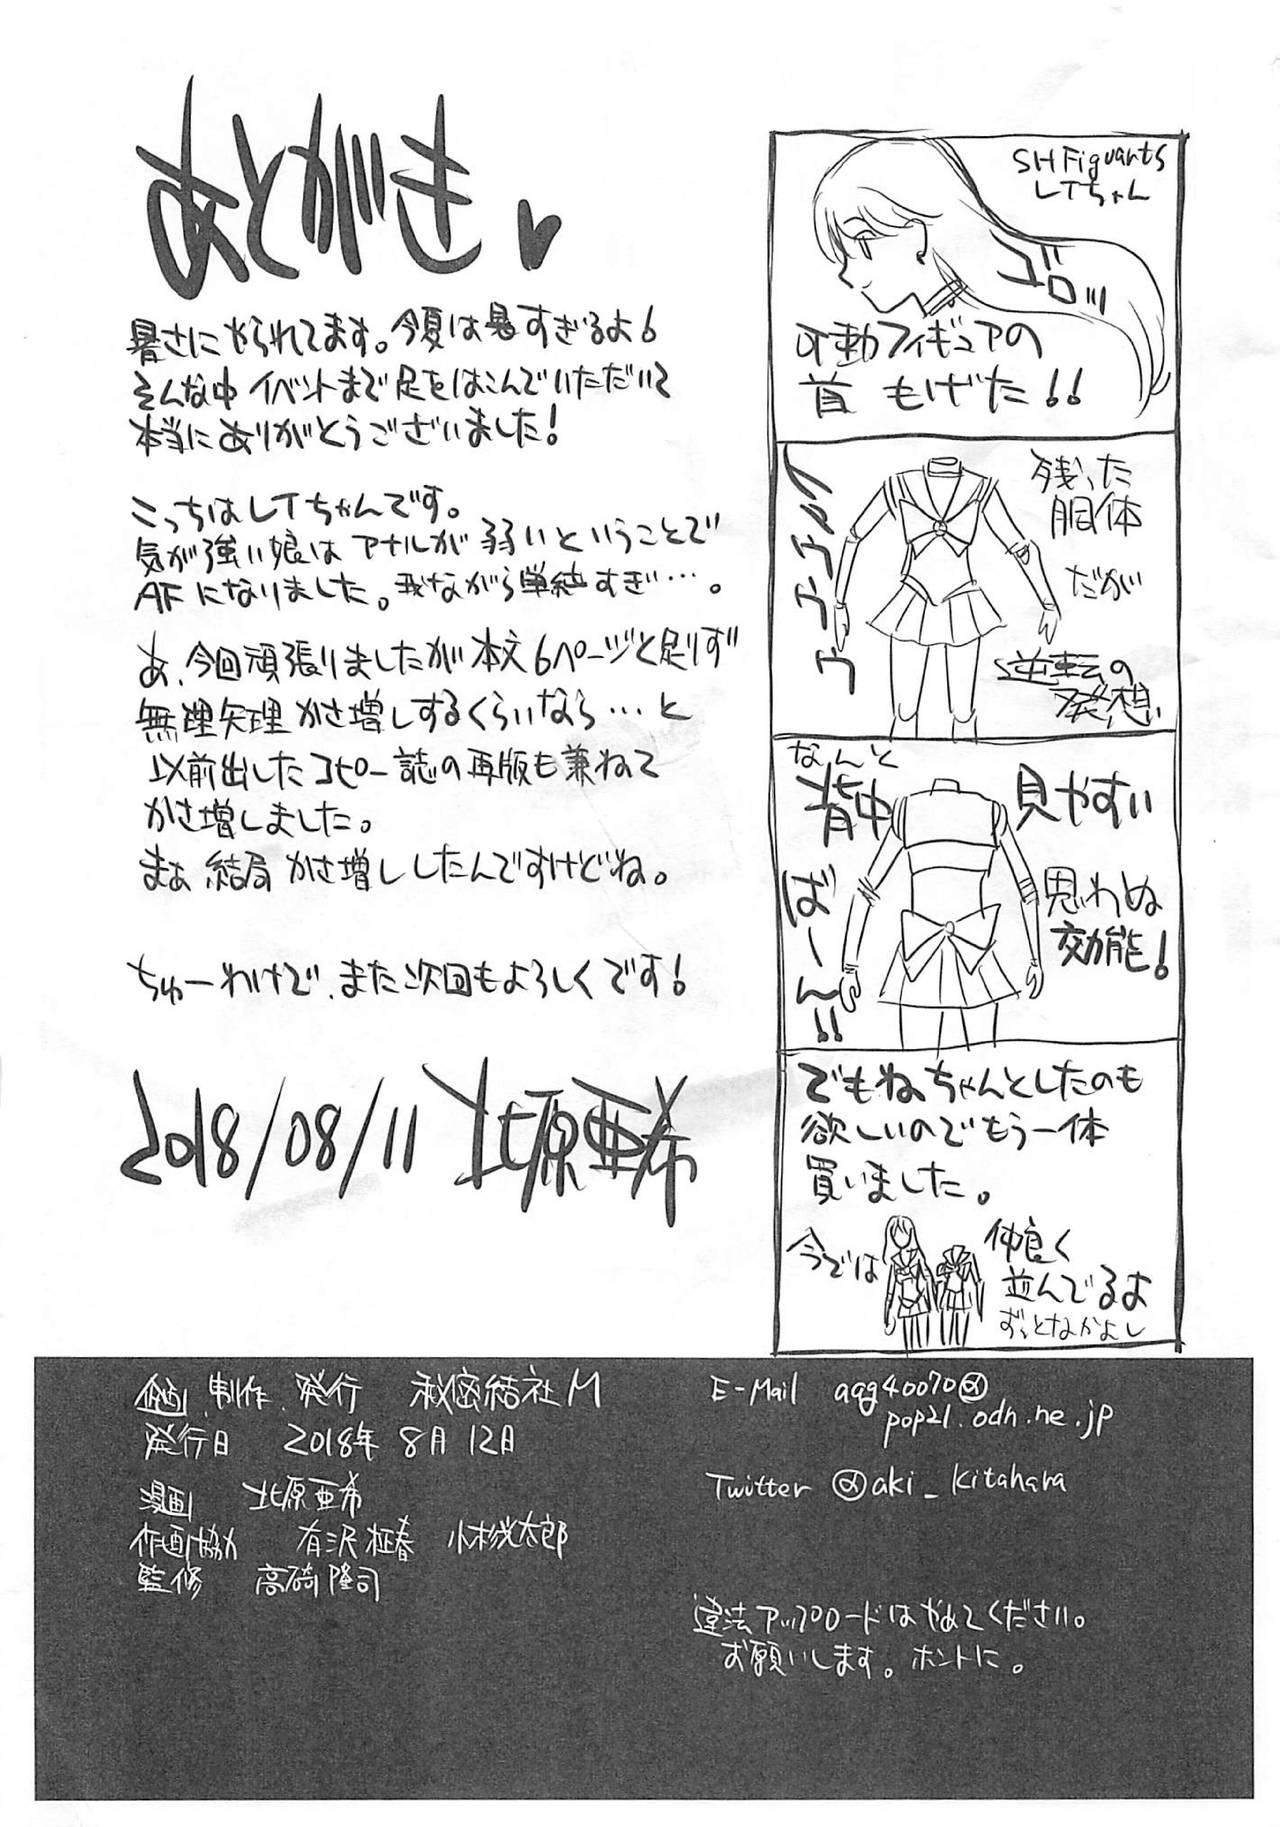 あとがき♥
暑さにやられてます。今夏は暑すぎるよ〜
そんな中イベントまで足をはこんでいただいて
本当にありがとうございました!
こっちはレイちゃんです。
気が強い娘はアナルが弱いということで
AFになりました。我ながら単純すぎ…。
あ、今回頑張りましたが本文6ページと足りず
無理矢理かさ増しするくらいなら…と
以前出したコピー誌の再版も兼ねて
かさ増しました。
まぁ結局かさ増ししたんですけどね。
ちゅーわけで、また次回もよろしくです!
2018/08/11 北原亜希
SHFiguarts
レイちゃん
ゴロッ
可動フィギュアの
首もげた!!
残った
胴体
だが
逆転の
発想
なんと
背中
見やすい
ばーん!!
思わぬ
効能!
でもねちゃんとしたのも
欲しいのでもう一体
買いました。
今では
仲良く
並んでるよ
ずっとなかよし
企画、制作、発行 秘密結社M
発行日 2018年 8月 12日
漫画 北原亜希
作画協力 有沢柾春 小杉光太郎
監修 高碕隆司
E-Mail agg40070@
pop21.odn.ne.jp
Twitter @aki_kitahara
違法アップロードはやめてください。
お願いします。ホントに。